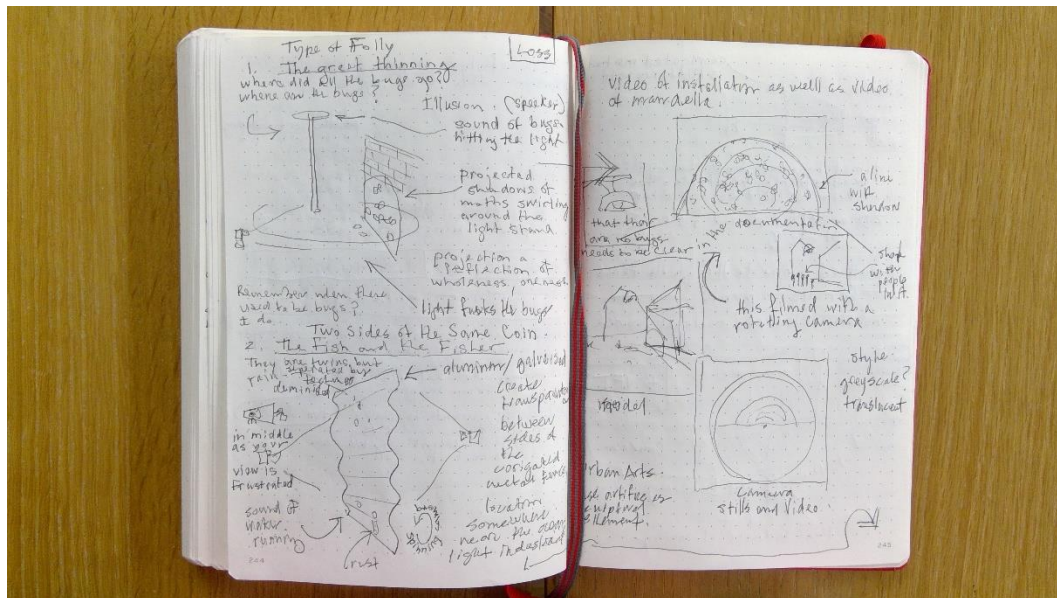 Type of Folly
Loss
1. The great thinning
where did all the bugs go?
where are the bugs?
Illusion. (speaker)
sound of bugs
hitting the light
projected
shadows of
moths swirling
around the
light stand
projection a
reflection of
wholeness, oneness
Remember when there
used to be bugs?
I do.
light the bugs
Two Sides of the Same Coin.
2. The Fish and the Fisher
They are twins but
separated by
aluminium/galvanised
create
between
sides of
the
metal fence
in middle
as your
view is
frustrated
sound of
water
running
rust
location
somewhere
near the
light industrial
244
video of installation as well as video
of mandella.
a line
with
shadow
that their
are no bugs
needs to be clear in the documentation
shape
with
people
in it.
this filmed with a
rotating camera
style
greyscale?
translucent
Urban Arts.
sculptural
element.
Camera
Stills and Video.
245